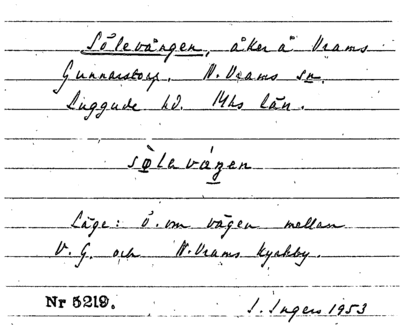 Sölevången, åker å Vrams
Gunnarstorp. N. Vrams sn.
Luggude hd. Mhs län.
sø̀leváŋen
Läge: ö. om vägen mellan
V. G. och N. Vrams kyrkby.
Nr 5219. I. Ingers 1953